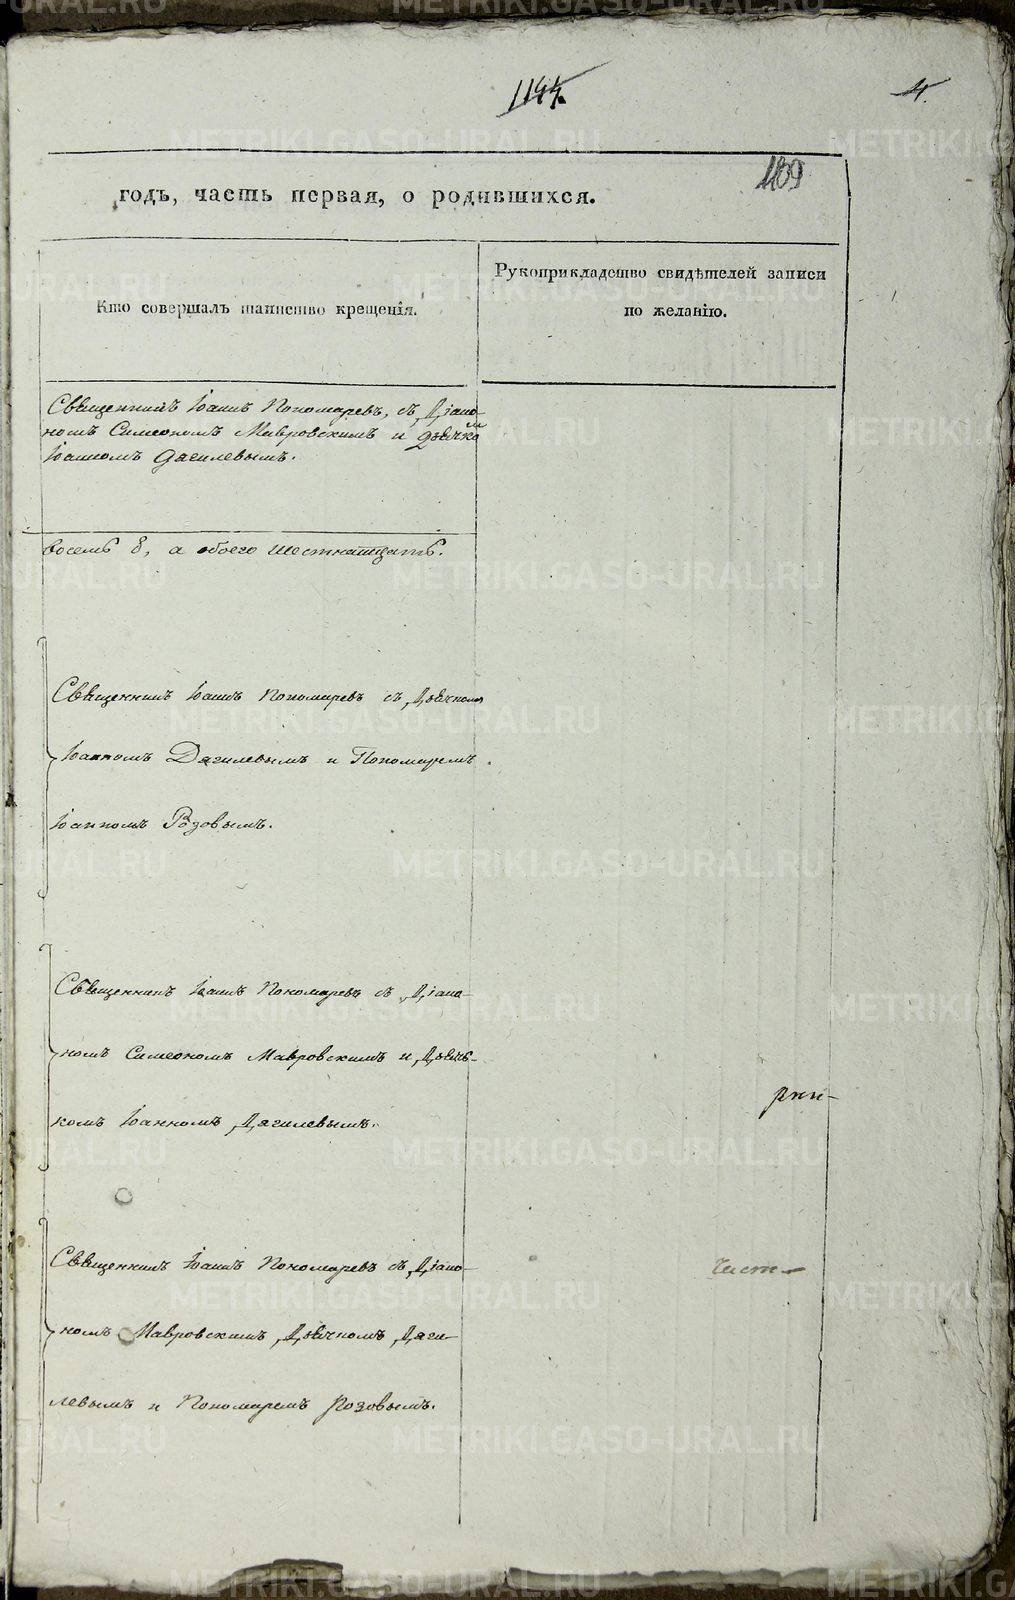 1144.
4.
109
годъ, часть первая, о родившихся.
Кто совершалъ таинство крещенія.
Рукоприкладство свидѣтелей записи
по желанію.
Священникъ Іоаннъ Пономаревъ, съ Діако-
номъ Симеономъ Мавровскимъ и дьячко
мъ
Іоанномъ Дягилевымъ.
восемь 8, а обоего шестнатцать.
Священникъ Іоаннъ Пономаревъ съ Дьячкомъ
Іоанномъ Дягилевымъ и Пономаремъ
Іоанномъ Розовымъ.
Священникъ Іоаннъ Пономаревъ съ Діако-
номъ Симеономъ Мавровскимъ и Дьяч-
комъ Іоанномъ Дягилевымъ.
Священникъ Іоаннъ Пономаревъ съ Діако-
номъ Мавровскимъ, Дьячкомъ Дяги-
левымъ и Пономаремъ Розовымъ.
METRIKI.GASO-URAL.RU